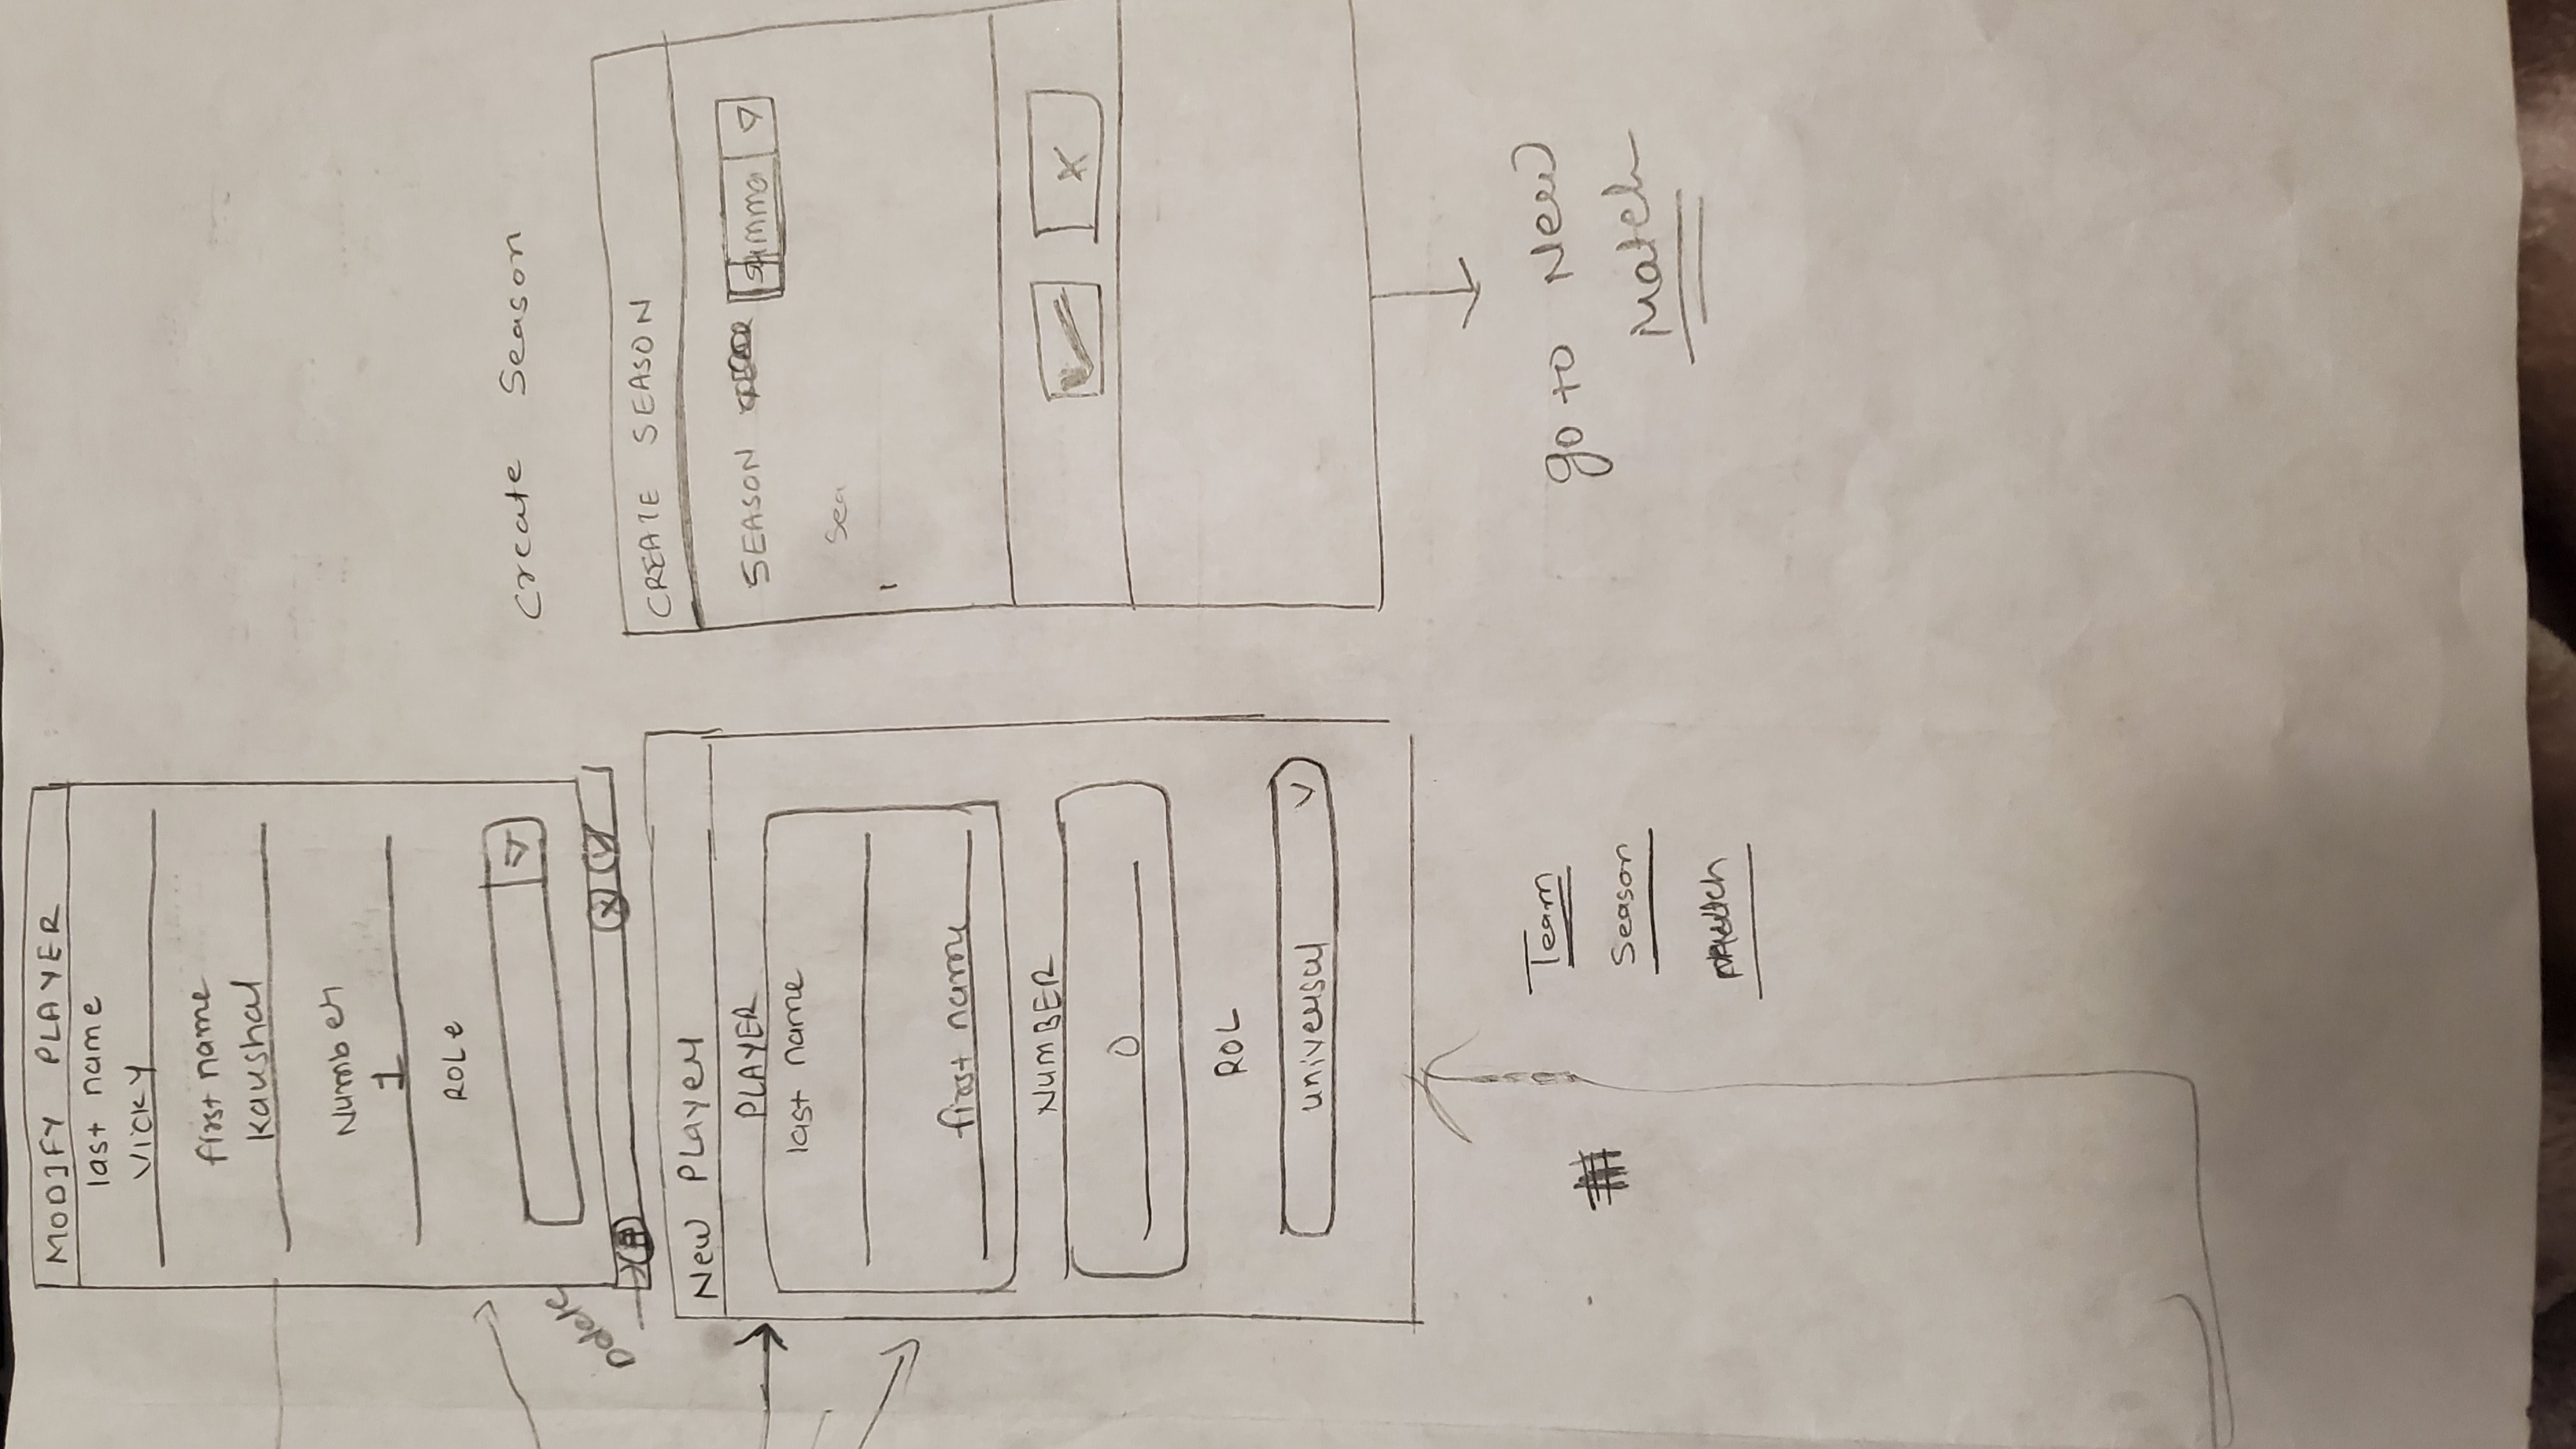 MODIFY PLAYER
last name
Vicky
first name
Kaushal
Number
1
ROLe
Delete
X
New Player
PLAYER
last name
first name
NUMBER
0
ROL
universal
Team
Season
Create Season
CREATE SEASON
SEASON
Summa
Sea
X
go to New
Match